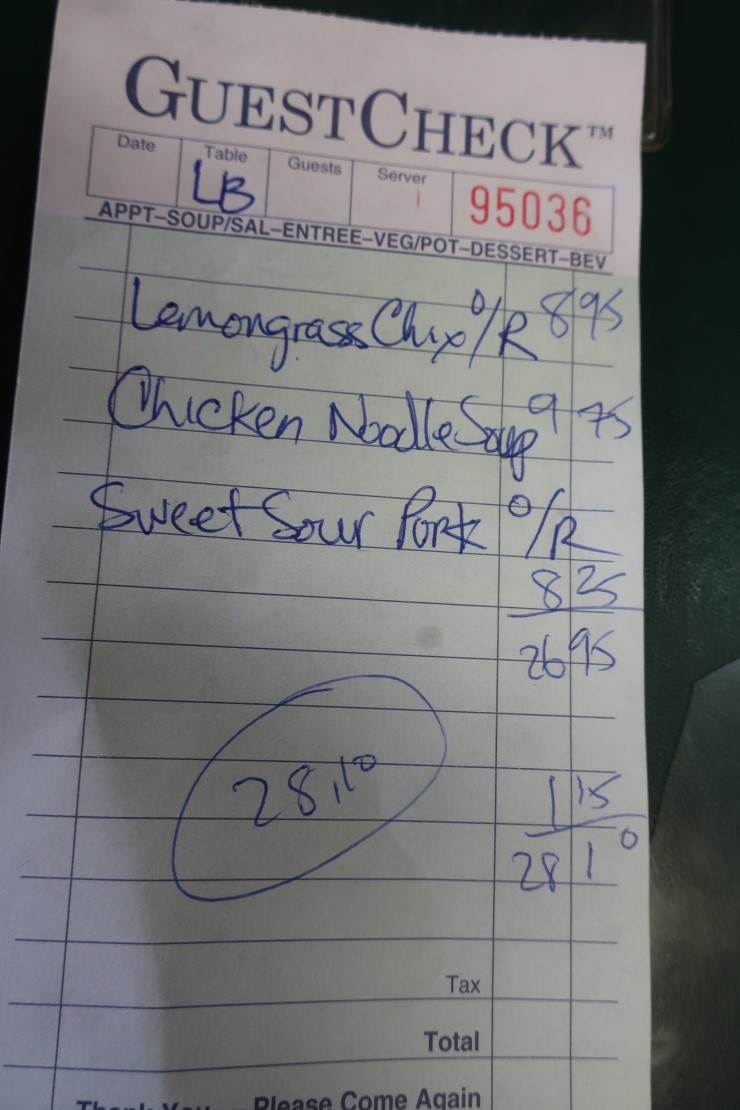 GUESTCHECK™
Date Table Guests Server
LB 95036
APPT–SOUP/SAL–ENTREE–VEG/POT–DESSERT–BEV
Lemongrass Chix O/R 8 95
Chicken Noodle Soup 9 75
Sweet Sour Pork O/R
8 25
26 95
28.10
1 15
28 10
Tax
Total
Thank You Please Come Again